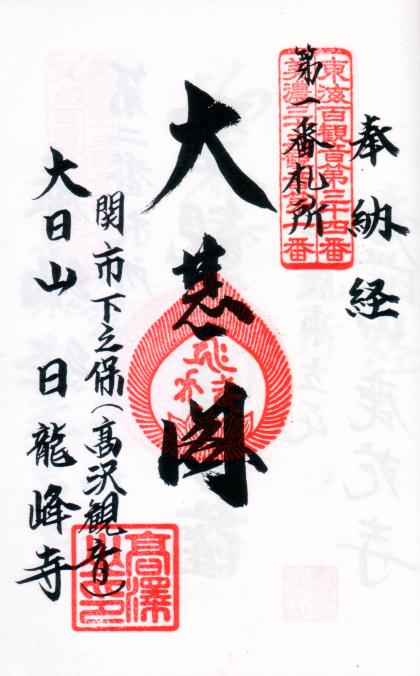 奉納経
東海百観音第三十四番
美濃三十三観音第一番
第一番札所
大悲閣
関市下之保(高沢観音)
大日山 日龍峰寺
高澤